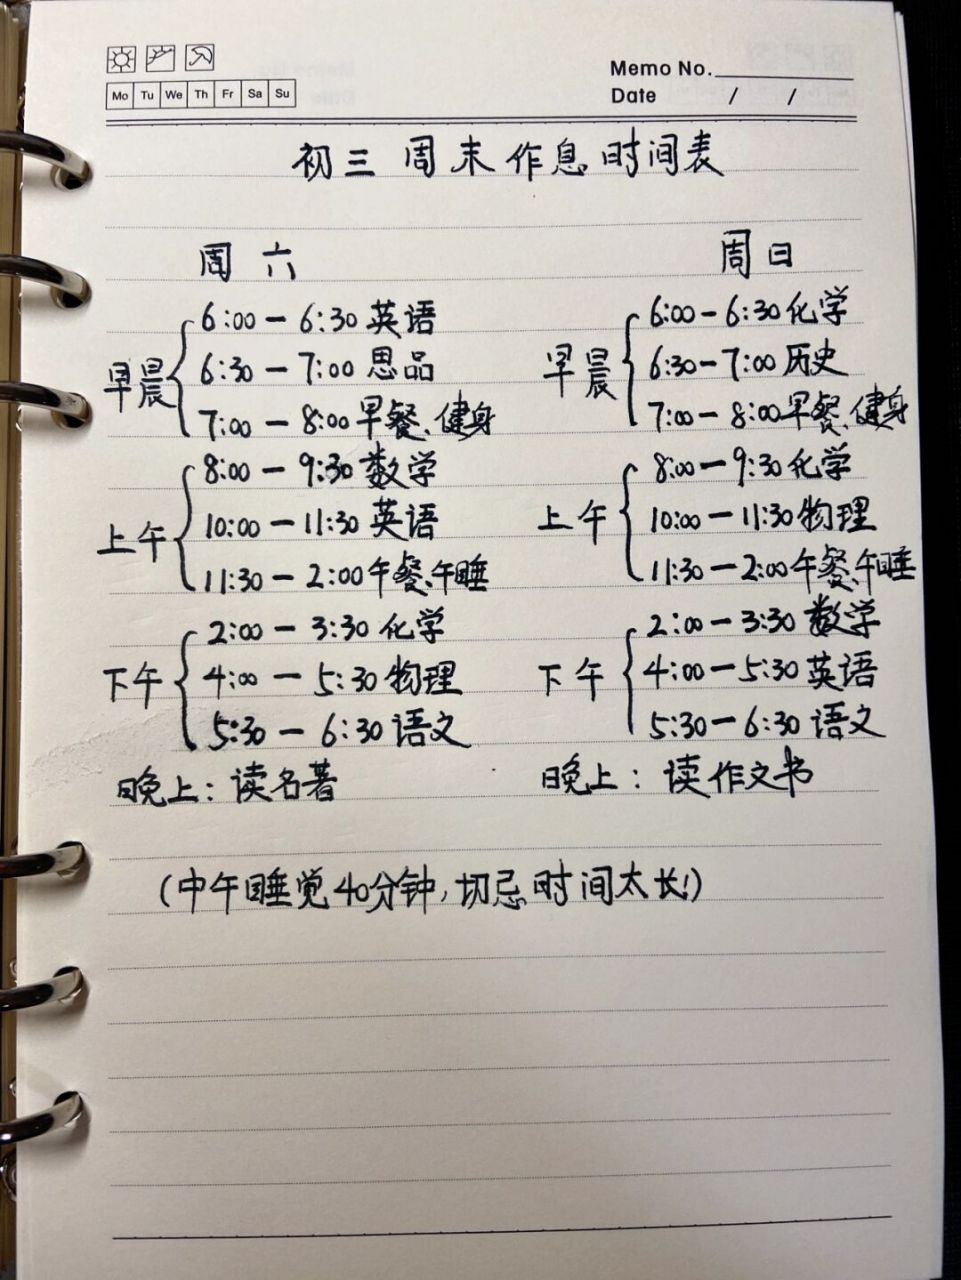 Memo No.
Mo Tu We Th Fr Sa Su
Date / /
初三周末作息时间表
周六
早晨
6:00 — 6:30 英语
6:30 — 7:00 思品
7:00 — 8:00 早餐、健身
上午
8:00 — 9:30 数学
10:00 — 11:30 英语
11:30 — 2:00 午餐、午睡
下午
2:00 — 3:30 化学
4:00 — 5:30 物理
5:30 — 6:30 语文
晚上：读名著
周日
早晨
6:00 — 6:30 化学
6:30 — 7:00 历史
7:00 — 8:00 早餐、健身
上午
8:00 — 9:30 化学
10:00 — 11:30 物理
11:30 — 2:00 午餐、午睡
下午
2:00 — 3:30 数学
4:00 — 5:30 英语
5:30 — 6:30 语文
晚上：读作文书
(中午睡觉40分钟,切忌时间太长!)